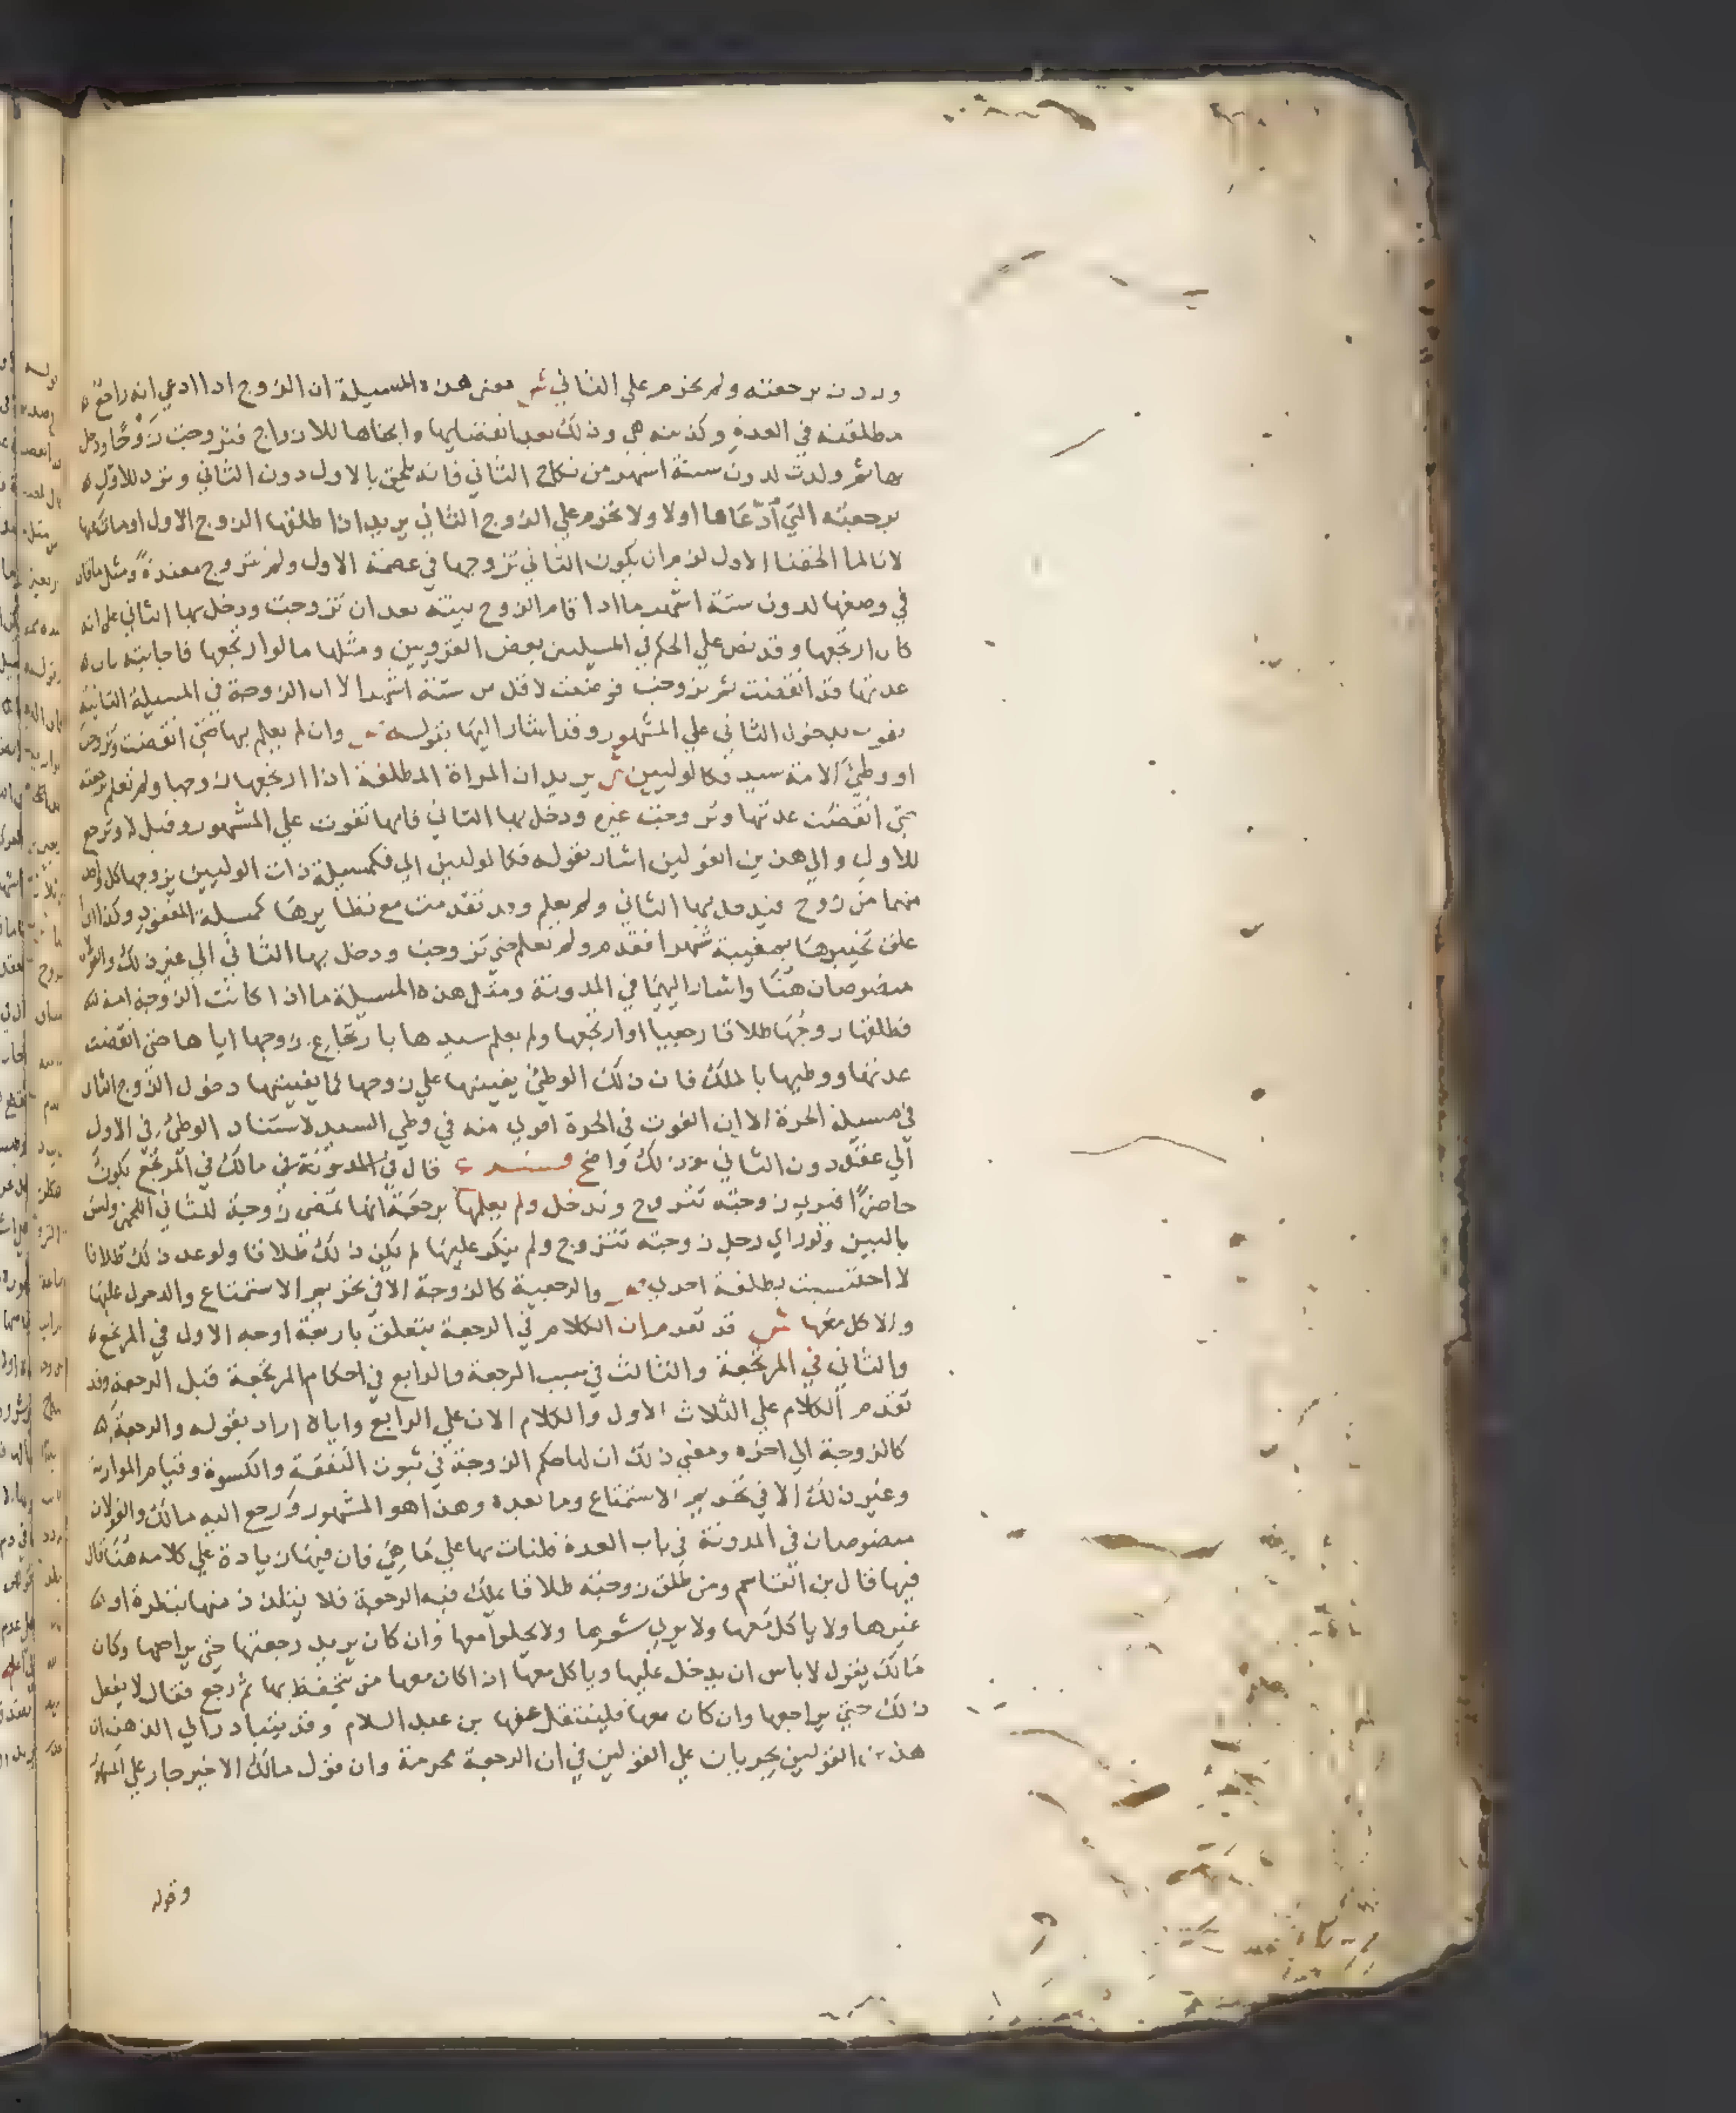 وردت برجعته ولم تحرم على الثاني ش معنى هذه المسيلة ان الزوج اذا ادعي انه راجع
مطلقته في العدة وكذبته هي وذلك بعد انقضايها وابحناها للازواج فتزوجت زوجًا ودخل
بها ثم ولدت لدون ستة اشهر من نكاح الثاني فانه يلحق بالاول دون الثاني وترد للاول
برجعته التي ادّعاها اولا ولا تحرم علي الزوج الثاني يريد اذا طلقها الزوج الاول اومات عنها
لانا لما الحقنا الاول لزم ان يكون الثاني تزوجها في عصمة الاول ولم تتزوج معتدةً ومثل ماقال
في وضعها لدون ستة اشهر ما اذا قام الزوج ببينة بعد ان تزوجت ودخل بها الثاني على انه
كان ارتجعها وقد نص علي الحكم في المسيلتين بعض القرويين ومثلها ما لو ارتجعها فاجابته بان
عدتها قد انقضت ثم تزوجت فوضعت لاقل من ستة اشهر الا ان الزوجة في المسيلة الثانية
تفوت بدخول الثاني علي المشهور وقد اشار اليها بقوله ص وان لم يعلم بها حتي انقضت وتزوجت
او وطئ الامة سيد فكالوليين ش يريد ان المراة المطلقة اذا ارتجعها زوجها ولم تعلم برجعته
حتي انقضت عدتها وتزوجت غيره ودخل بها الثاني فانها تفوت علي المشهور وقيل لا وترجع
للاول والي هذين القولين اشار بقوله فكالوليين اي فكمسيلة ذات الوليين يزوجها كل واحد
منهما من زوج فيدخل بها الثاني ولم يعلم وقد تقدمت مع نظايرها كمسيلة المفقود وكذا ان
علق تخييرها بمغيبة شهرا فقدم ولم تعلم حتي تزوجت ودخل بها الثاني الي غير ذلك والقولان
منصوصان هنا واشار اليهما في المدونة ومثل هذه المسيلة ما اذا كانت الزوجة امة
فطلقها زوجها طلاقا رجعيا او ارتجعها ولم يعلم سيدها بارتجاع زوجها اياها حتي انقضت
عدتها ووطيها بالملك فان ذلك الوطئ يفيتها علي زوجها كما يفيتها دخول الزوج الثان
في مسيلة الحرة الا ان الفوت في الحرة اقوي منه في وطي السيد لاستناد الوطئ في الاول
الي عقد دون الثاني وذلك واضح قال في المدونة عن مالك في المرتجع يكون
حاضرًا فيري زوجته تتزوج وتدخل ولم يعلمها برجعة انها تمضي زوجة للثاني اللخمي وليس
بالبين ولو راي رجل زوجته تتزوج ولم ينكر عليها لم يكن ذلك طلاقا ولو عد ذلك طلاقا
لاحتسبت بطلقة اخري ص والرجعية كالزوجة الا في تحريم الاستمتاع والدخول عليها
والاكل معها ش قد تقدم ان الكلام في الرجعة يتعلق باربعة اوجه الاول في المرتجع
والثاني في المرتجعة والثالث في سبب الرجعة والرابع في احكام المرتجعة قبل الرجعة وقد
تقدم الكلام علي الثلاث الاول والكلام الان علي الرابع واياه اراد بقوله والرجعية
كالزوجة الي اخره ومعني ذلك ان لها حكم الزوجة في ثبوت النفقة والكسوة وقيام الموارثة
وغير ذلك الا في تحريم الاستمتاع وما بعده وهذا هو المشهور ورجع اليه مالك والقولان
منصوصان في المدونة في باب العدة فلنات بها علي ما هي فان فيها زيادة علي كلامه هنا قال
فيها قال بن القاسم ومن طلق زوجته طلاقا يملك فيه الرجعة فلا يتلذذ منها بنظرة او
غيرها ولا ياكل معها ولا يري شعرها ولا يخلوا معها وان كان يريد رجعتها حتي يراجعها وكان
مالك يقول لا باس ان يدخل عليها وياكل معها اذا كان معها من يتحفظ بها ثم رجع فقال لا يفعل
ذلك حتي يراجعها وان كان معها فلينتقل عنها بن عبد السلام وقد يتبادر الي الذهن ان
هذين القولين يجريان علي القولين في ان الرجعة محرمة وان قول مالك الاخير جار علي المشهور
وقوله